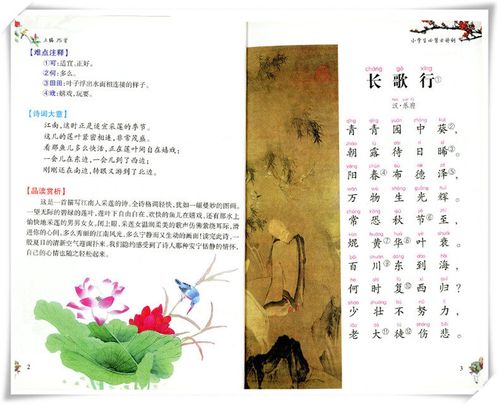 上编 75首
【难点注释】
①可:适宜、正好。
②何:多么。
③田田:叶子浮出水面相连接的样子。
④戏:嬉戏,玩耍。
【诗词大意】
江南,这时正是适宜采莲的季节。
这儿的莲叶紧密相连,非常茂盛。
看那鱼儿多么快活,正在莲叶间自在嬉戏:
一会儿在东边,一会儿到了西边;
刚刚还在南边,转眼又游到了北边。
【品读赏析】
这是一首描写江南人采莲的诗,全诗格调轻快,犹如一幅曼妙的图画。
一望无际的碧绿的莲叶,莲叶下自由自在、欢快的鱼儿在嬉戏,还有那水上
愉快地采莲的男男女女,闭上眼,采莲女温润柔美的歌声仿佛萦绕耳际,滑
进你的心间,多么秀丽的江南风光,多么宁静而又生动的画面!读完此诗,一
股夏日的清新空气迎面扑来,我们隐约感受到了诗人那种安宁恬静的情怀,
自己的心情也随之轻松起来。
2
小学生必背古诗词
cháng gē xíng
长歌行①
汉·乐府
qīng qīng yuán zhōng kuí
青青园中葵②,
zhāo lù dài rì xī
朝露待日晞③。
yáng chūn bù dé zé
阳春④布德泽⑤,
wàn wù shēng guāng huī
万物生光辉。
cháng kǒng qiū jié zhì
常恐秋节⑥至,
kūn huáng huā yè shuāi
焜黄⑦华⑧叶衰。
bǎi chuān dōng dào hǎi
百川⑨东到海,
hé shí fù xī guī
何时复西归?
shào zhuàng bù nǔ lì
少壮不努力,
lǎo dà tú shāng bēi
老大⑪徒⑫伤悲。
3